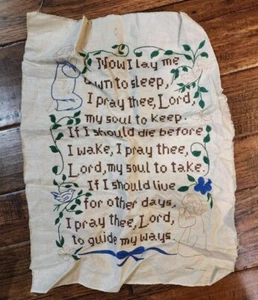 Now I lay me
down to sleep,
I pray thee, Lord,
my soul to keep.
If I should die before
I wake, I pray thee,
Lord, my soul to take.
If I should live
for other days,
I pray thee, Lord,
to guide my ways.